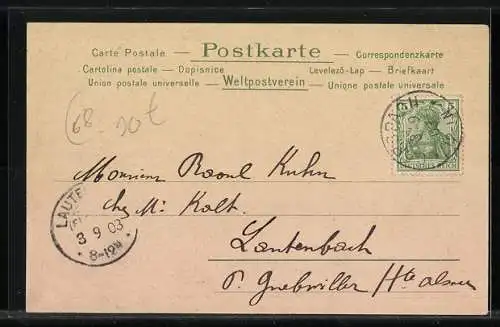 Carte Postale — Postkarte — Correspondenzkarte
Cartolina postale — Dopisnice Levelező-Lap — Briefkaart
Union postale universelle — Weltpostverein — Unione postale universale
68
Monsieur Raoul Kuhn
chez Mr Kolt.
Lautenbach
p. Guebwiller Hte alsace
LAUTE
8 9 03
* 8-12N *